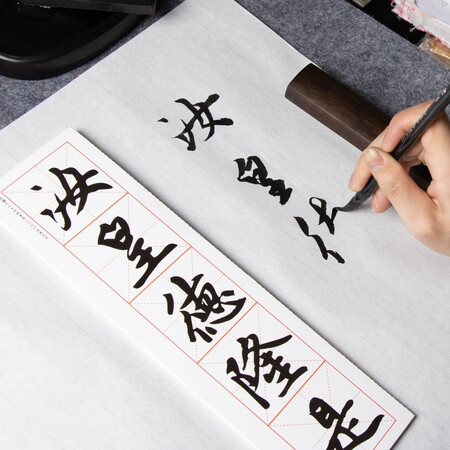 汝皇德隆是
汝皇